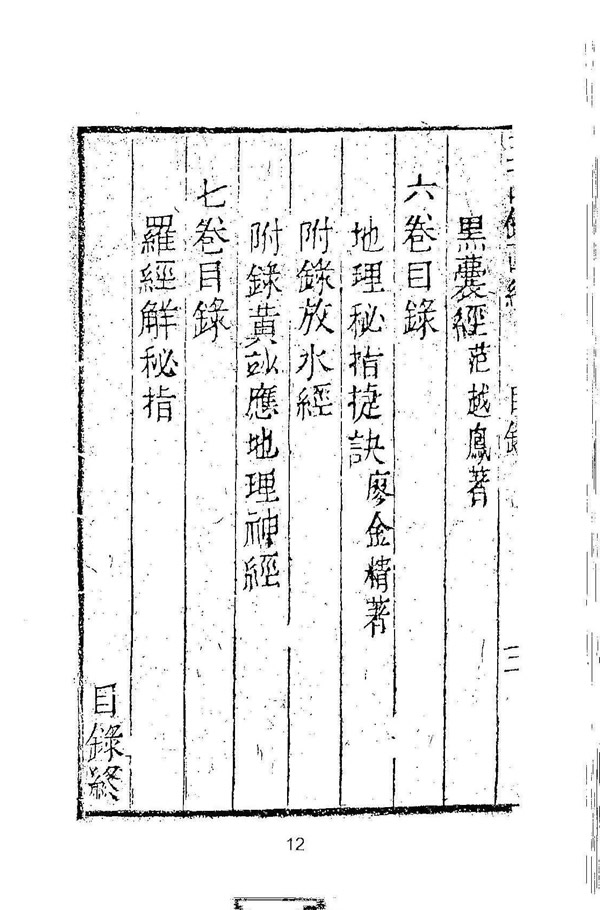 黒囊經 范越鳳著
六卷目錄
地理秘指捷訣 廖金精著
附錄放水經
附錄黃妙應地理神經
七卷目錄
羅經解秘指
目錄終
目錄
12